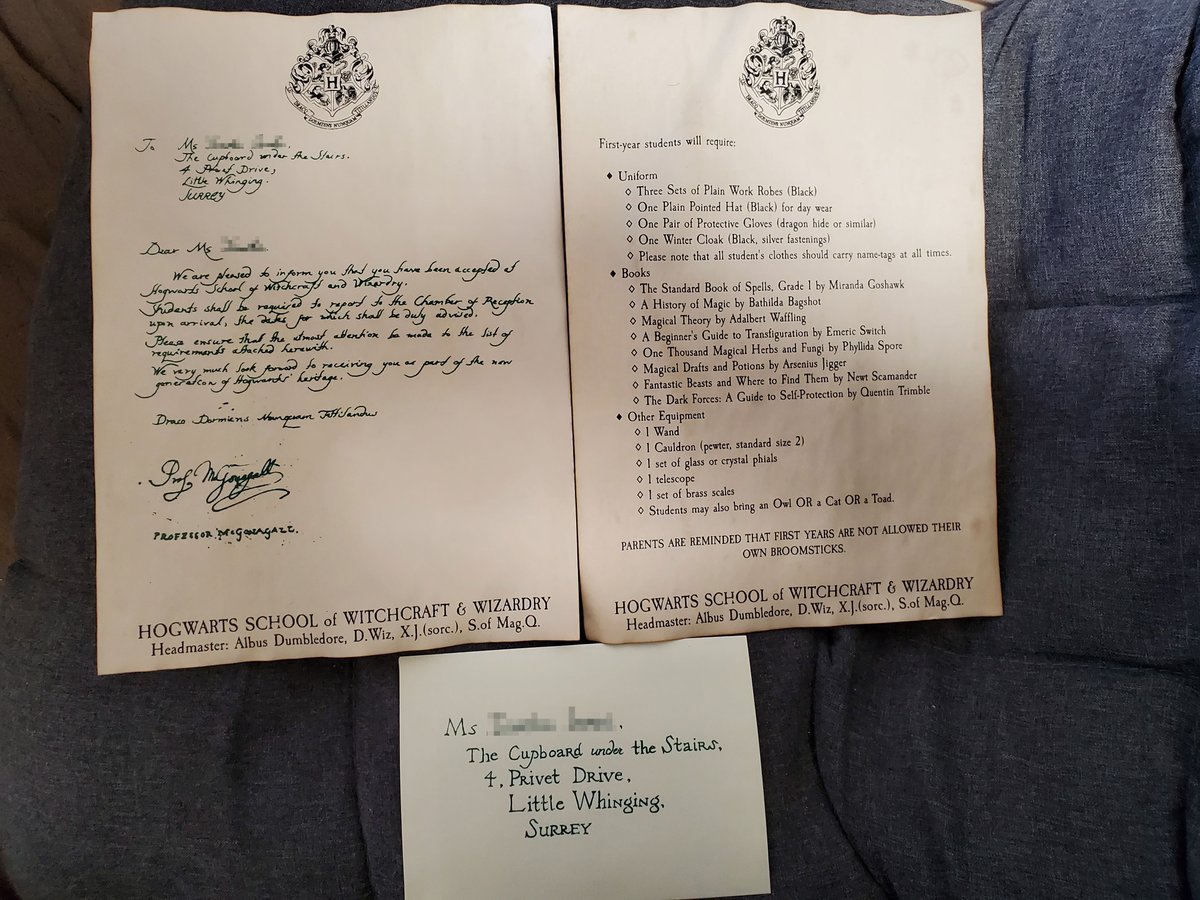 DRACO DORMIENS NUNQUAM TITILLANDUS
H
To Ms
The Cupboard under the Stairs.
4 Privet Drive,
Little Whinging.
SURREY
Dear Ms
We are pleased to inform you that you have been accepted at
Hogwarts School of Witchcraft and Wizardry.
Students shall be required to report to the Chamber of Reception
upon arrival, the dates for which shall be duly advised.
Please ensure that the utmost attention be made to the list of
requirements attached herewith.
We very much look forward to receiving you as part of the new
generation of Hogwarts' heritage.
Draco Dormiens Nunquam Titillandus
Prof McGonagall
PROFESSOR McGONAGALL.
HOGWARTS SCHOOL of WITCHCRAFT & WIZARDRY
Headmaster: Albus Dumbledore, D.Wiz, X.J.(sorc.), S.of Mag.Q.
DRACO DORMIENS NUNQUAM TITILLANDUS
H
First-year students will require:
♦ Uniform
◊ Three Sets of Plain Work Robes (Black)
◊ One Plain Pointed Hat (Black) for day wear
◊ One Pair of Protective Gloves (dragon hide or similar)
◊ One Winter Cloak (Black, silver fastenings)
◊ Please note that all student's clothes should carry name-tags at all times.
♦ Books
◊ The Standard Book of Spells, Grade 1 by Miranda Goshawk
◊ A History of Magic by Bathilda Bagshot
◊ Magical Theory by Adalbert Waffling
◊ A Beginner's Guide to Transfiguration by Emeric Switch
◊ One Thousand Magical Herbs and Fungi by Phyllida Spore
◊ Magical Drafts and Potions by Arsenius Jigger
◊ Fantastic Beasts and Where to Find Them by Newt Scamander
◊ The Dark Forces: A Guide to Self-Protection by Quentin Trimble
♦ Other Equipment
◊ 1 Wand
◊ 1 Cauldron (pewter, standard size 2)
◊ 1 set of glass or crystal phials
◊ 1 telescope
◊ 1 set of brass scales
◊ Students may also bring an Owl OR a Cat OR a Toad.
PARENTS ARE REMINDED THAT FIRST YEARS ARE NOT ALLOWED THEIR
OWN BROOMSTICKS.
HOGWARTS SCHOOL of WITCHCRAFT & WIZARDRY
Headmaster: Albus Dumbledore, D.Wiz, X.J.(sorc.), S.of Mag.Q.
Ms
The Cupboard under the Stairs,
4, Privet Drive,
Little Whinging,
SURREY